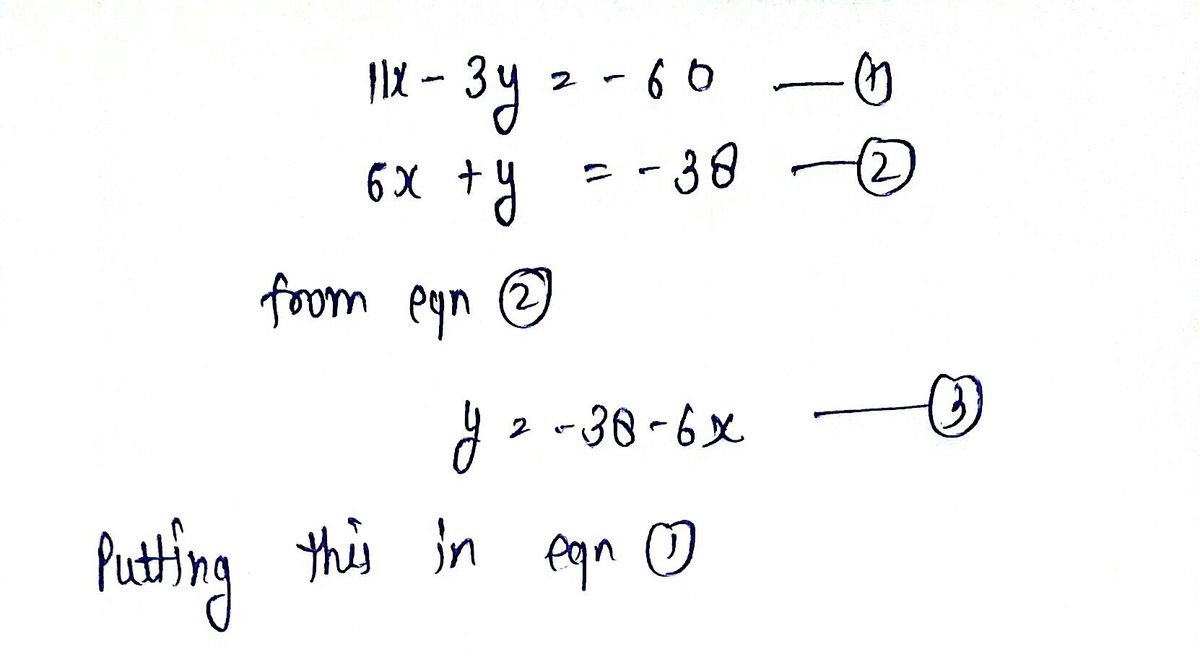 11x - 3y = - 60 — ①
6x + y = - 38 — ②
from eqn ②
y = - 38 - 6x — ③
Putting this in eqn ①